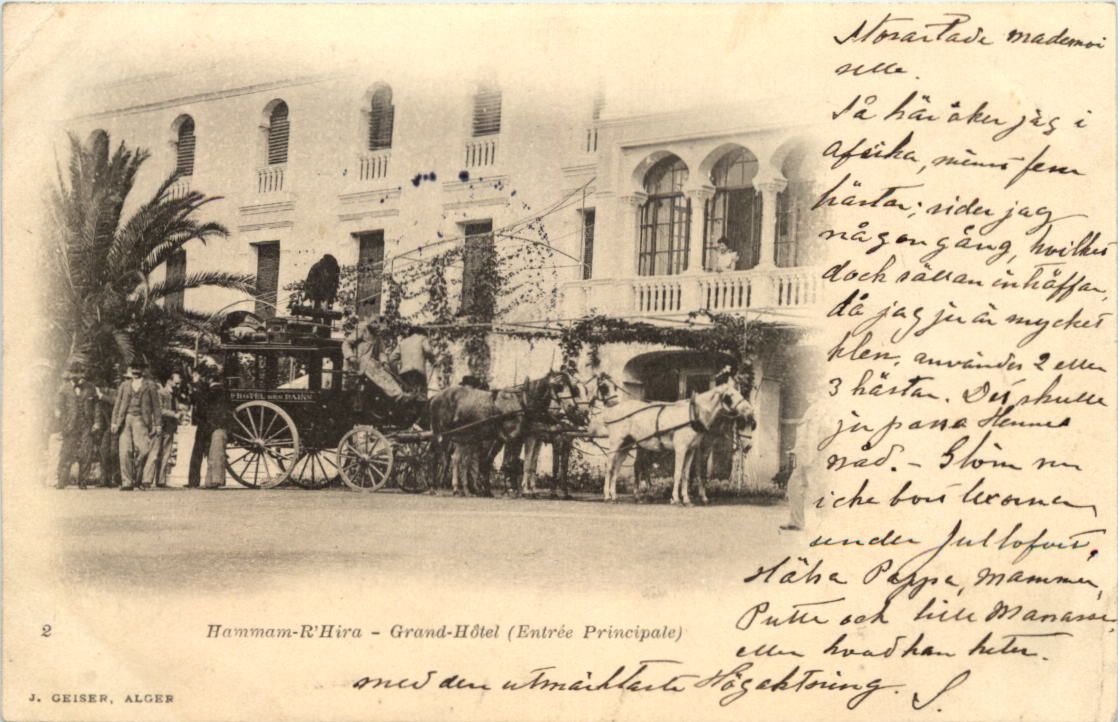 Storartade mademoi
selle.
Så här åker jag i
Afrika, minst fem
hästar; rider jag
någon gång, hvilket
dock sällan inhäffar,
då jag ju är mycket
klen, användes 2 eller
3 hästar. Det skulle
ju passa Hennes
nåd. – Glöm nu
icke bort lexorna
under Jullofvet.
Hälsa Pappa, Mamma,
Putte och lille Manasse
eller hvad han heter.
med den utmärktaste Högaktning. S.
HOTEL DES BAINS
2
Hammam-R'Hira - Grand-Hôtel (Entrée Principale)
J. GEISER, ALGER